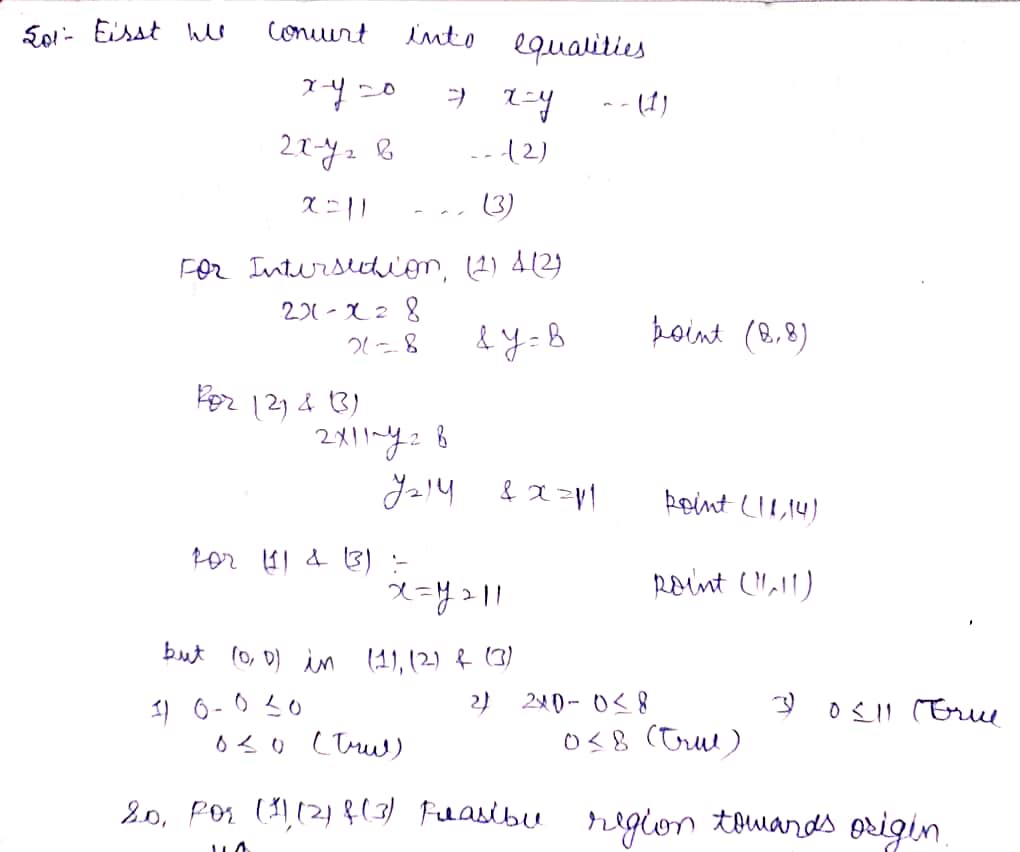 Sol:- First we convert into equalities
x-y=0 ⇒ x=y --(1)
2x-y=8 --(2)
x=11 ---- (3)
For Intersection, (1) &(2)
2x-x=8
x=8 & y=8 point (8,8)
For (2) & (3)
2x11-y=8
y=14 & x=11 point (11,14)
for (1) & (3) :-
x=y=11 point (11,11)
but (0,0) in (1), (2) & (3)
1) 0-0≤0 2) 2x0-0≤8 3) 0≤11 (True
0≤0 (True) 0≤8 (True)
So, For (1),(2) &(3) Feasible region towards origin.